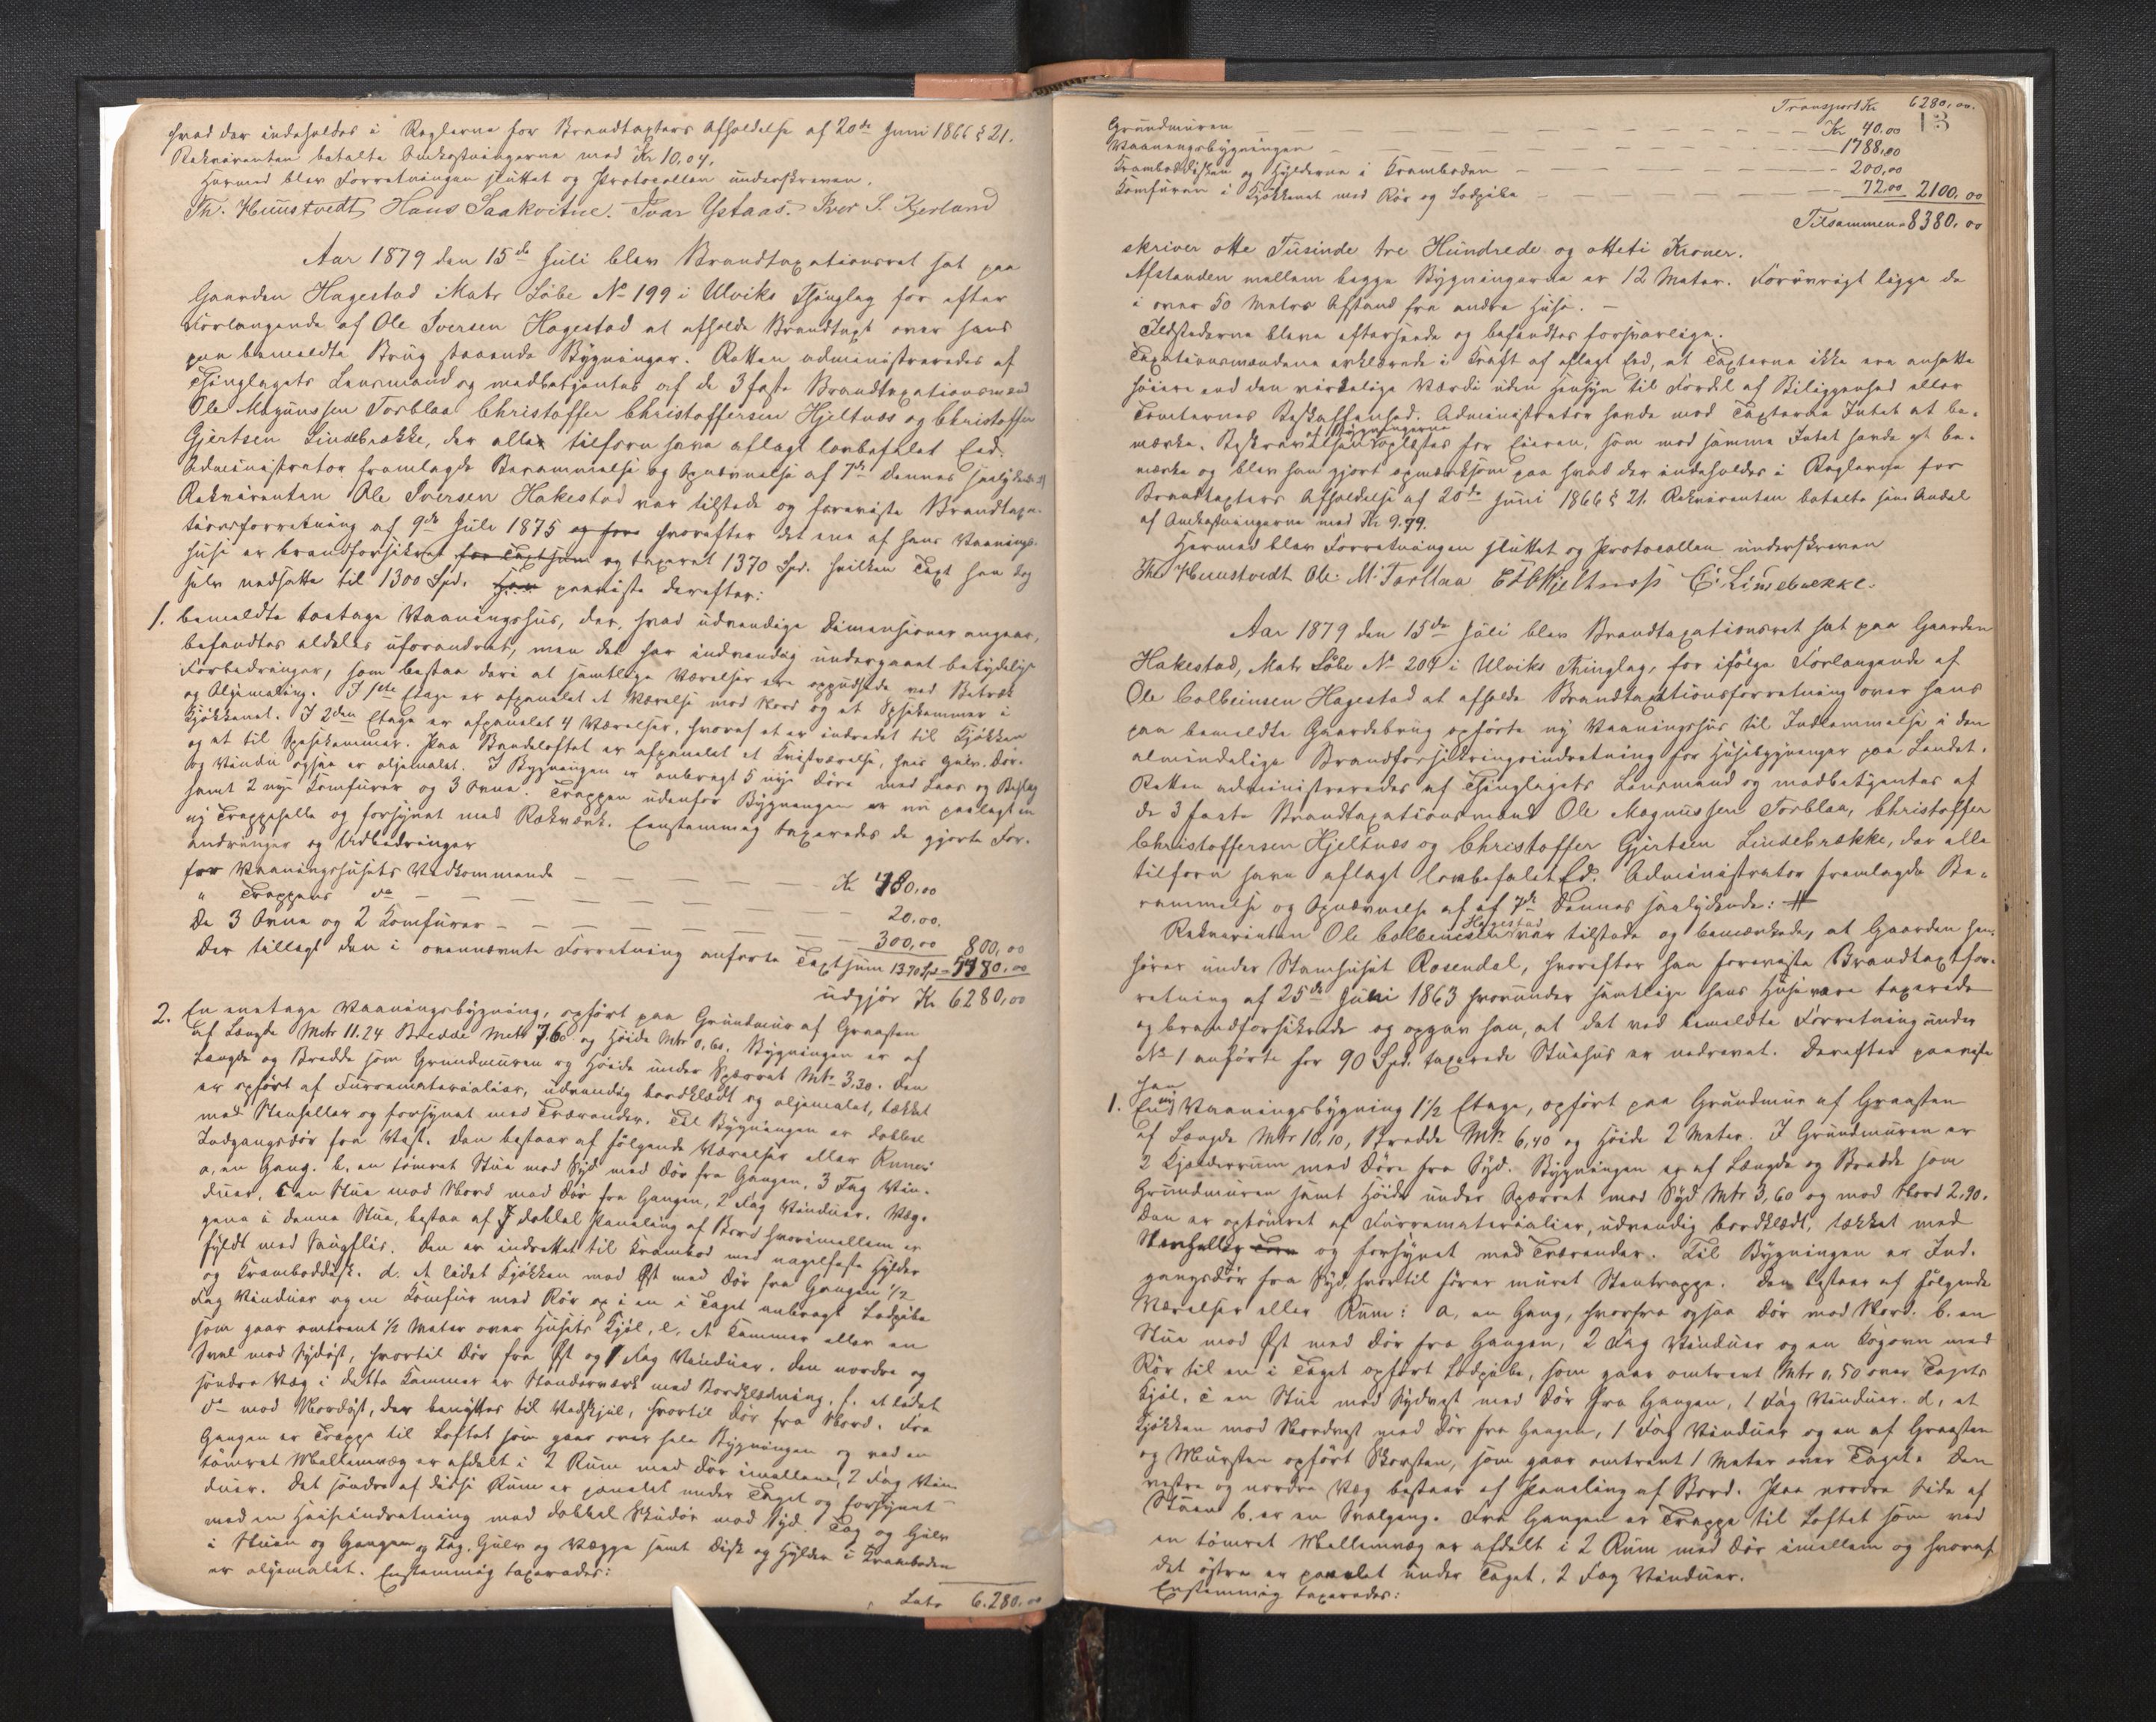 hvad der indeholdes i Reglerne for Brandtaxters Afholdelse af 20de Juni 1866 § 21.
Rekvirenten betalte Omkostningerne med Kr 10.04.
Hermed blev Forretningen sluttet og Protocollen underskreven.
Th. Huustvedt, Hans Saakvitne. Ivar Ystaas. Iver S. Kjerland
Aar 1879 den 15de Juli blev Brandtaxationsret sat paa
Gaarden Hagestad Matr Løbe No 199 i Ulviks Thinglag for efter
Forlangende af Ole Iversen Hagestad at afholde Brandtaxt over hans
paa bemeldte Brug staaende Bygninger. Retten administreredes af
Thinglagets Lensmand og medbetjentes af de 3 faste Brandtaxationsmænd
Ole Magnussen Torblaa Christoffer Christoffersen Hjeltnæs og Christoffer
Gjertsen Lindebrække, der alle tilforn have aflagt lovbefalet Eed.
Administrator fremlagde Berammelse og Opnævnelse af 7de dennes saalydende
Rekvirenten Ole Iversen Hakestad var tilstede og foreviste Brandtaxa-
tionsforretning af 9de Juli 1875 og hvor hvorefter det ene af hans Vaanings-
huse er brandforsikret for Taxtsum og taxeret 1370 Spd. hvilken Taxt han dog
selv nedsatte til 1300 Spd. Han paaviste derefter:
1. bemeldte toetage Vaaningshus, der, hvad udvendige Dimensioner angaar,
befandtes aldeles uforandret, men det har indvendig undergaaet betydelige
Forbedringer, som bestaa deri at samtlige Værelser ere oppudsede ved Betræk
og Oljemaling. I 1ste Etage er afpanelet et Værelse mod Nord og et Spisekammer i
Kjøkkenet. I 2den Etage er afpanelet 4 Værelser, hvoraf et er indredet til Kjøkken
og et til Spisekammer. Paa Brædeloftet er afpanelet et Kvistværelse, hvis Gulv. Dør.
og Vindu ogsaa er oljemalet. I Bygningen er anbragt 5 nye Døre med Laas og Beslag
samt 2 nye Komfurer og 3 Ovne. Trappen udenfor Bygningen er nu paalagt en
ny Trappehelle og forsynet med Rækværk. Eenstemmig taxeredes de gjorte For-
andringer og Udbedringer
for Vaaningshusets Vedkommende — — — — Kr 480,00
" Trappens do — — — — — 20.00.
De 3 Ovne og 2 Komfurer — — — — — 300,00 800,00
Der tillagt den i ovennævnte Forretning anførte Taxtsum 1370 Spd = 5480.00
udgjør Kr 6280,00
2. En enetage Vaaningsbygning, opført paa Grundmur af Graasten
af Længde Mtr 11.24 Bredde Mtr 7.60 og Høide Mtr 0,60. Bygningen er af
Længde og Bredde som Grundmuren og Høide under Spærret Mtr 3.30. Den
er opført af Furrematerialier, udvendig bordklædt og oljemalet, tækket
med Stenheller og forsynet med Trærender. Til Bygningen er dobbel
Indgangsdør fra Vest. Den bestaar af følgende Værelser eller Rum:
a, en Gang. b. en tømret Stue mod Syd med Dør fra Gangen, 3 Fag Vin-
duer, c en Stue mod Nord med Dør fra Gangen, 2 Fag Vinduer. Væg-
gene i denne Stue, bestaa af dobbel Paneling af Bord hvorimellem er
fyldt med Saugflis. Den er indrettet til Krambod med nagelfaste Hylder
og Kramboddisk. d. et lidet Kjøkken mod Øst med Dør fra Gangen 1/2
Fag Vinduer og en Komfur med Rør op i en i Taget anbragt Lodpibe
som gaar omtrent 1/2 Meter over Husets Kjøl, e, et Kammer eller en
Sval mod Sydøst, hvortil Dør fra Øst og 1 Fag Vinduer. Den nordre og
søndre Væg i dette Kammer er Standerværk med Bordklædning, f. et lidet
do mod Nordøst, der benyttes til Vedskjul, hvortil Dør fra Nord. Fra
Gangen er Trappe til Loftet som gaar over hele Bygningen og ved en
tømret Mellemvæg er afdelt i 2 Rum med Dør imellem, 2 Fag Vin-
duer. Det søndre af disse Rum er panelet under Taget og forsynet
med en Heiseindretning med dobbel Skudør mod Syd. Tag og Gulv
i Stuen og Gangen og Tag. Gulv og Vægge samt Disk og Hylder i Kramboden
er oljemalet. Enstemmig taxeredes:
Lats 6.280.00
Transport Kr 6280,00.
13
Grundmuren — — — — Kr 40.00
Vaaningsbygningen — — — — 1788,00
Kramboddisken og Hylderne i Kramboden — — — 200,00
Komfuren i Kjøkkenet med Rør og Lodpibe — — — 72,00 2100,00
Tilsammen 8380,00
skriver otte Tusinde tre Hundrede og otteti Kroner.
Afstanden mellem begge Bygningerne er 12 Meter. Forøvrigt ligge de
i over 50 Meters Afstand fra andre Huse. —
Ildstederne bleve efterseede og befandtes forsvarlige.
Taxationsmændene erklærede i Kraft af aflagt Eed, at Taxterne ikke ere ansatte
høiere end den virkelige Værdi uden Hensyn til Fordel af Beliggenhed eller
Tomternes Beskaffenhed. Administrator havde mod Taxterne Intet at be-
mærke. Beskrivelsen af Bygningerne oplæstes for Eieren, som mod samme Intet havde at be-
mærke og blev han gjort opmærksom paa hvad der indeholdes i Reglerne for
Brandtaxters Afholdelse af 20de Juni 1866 § 21. Rekvirenten betalte sin Andel
af Omkostningerne med Kr 9.79.
Hermed blev Forretningen sluttet og Protocollen underskreven
Th. Huustvedt Ole M. Torblaa C C Hjeltnæss C. Lindebrække.
Aar 1879 den 15de Juli blev Brandtaxationsret sat paa Gaarden
Hakestad, Matr Løbe No 204 i Ulviks Thinglag, for ifølge Forlangende af
Ole Colbeinsen Hagestad at afholde Brandtaxationsforretning over hans
paa bemeldte Gaardebrug opførte ny Vaaningshus til Indlemmelse i den
almindelige Brandforsikringsindretning for Husebygninger paa Landet.
Retten administreredes af Thinglagets Lensmand og medbetjentes af
de 3 faste Brandtaxationsmænd Ole Magnussen Torblaa, Christoffer
Christoffersen Hjeltnæs og Christoffer Gjertsen Lindebrække, der alle
tilforn have aflagt lovbefalet Ed. Administrator fremlagde Be-
rammelse og Opnævnelse af af 7de Dennes saalydende: #
Rekvirenten Ole Colbeinsen Hagestad var tilstede og bemærkede, at Gaarden hen-
hører under Stamhuset Rosendal, hvorefter han foreviste Brandtaxtfor-
retning af 25de Juni 1863 hvorunder samtlige hans Huse vare taxerede
og brandforsikrede og opgav han, at det ved bemeldte Forretning under
No 1 anførte for 90 Spd. taxerede Stuehus er nedrevet. Derefter paaviste
han
1. En ny Vaaningsbygning 1 1/2 Etage, opført paa Grundmur af Graasten
af Længde Mtr 10,10, Bredde Mtr 6,40 og Høide 2 Meter. I Grundmuren er
2 Kjælderrum med Døre fra Syd. Bygningen er af Længde og Bredde som
Grundmuren samt Høide under Spærret mod Syd Mtr 3,60 og mod Nord 2,90.
Den er optømret af Furrematerialier, udvendig bordklædt, tækket med
Stenheller og forsynet med Trærender. Til Bygningen er Ind-
gangsdør fra Syd, hvortil fører muret Stentrappe. Den bestaar af følgende
Værelser eller Rum: a, en Gang, hvorfra ogsaa Dør mod Nord. b. en
Stue mod Øst med Dør fra Gangen, 2 Fag Vinduer og en Kogovn med
Rør til en i Taget opført Lodpibe, som gaar omtrent Mtr 0.50 over Tagets
Kjøl. c en Stue mod Sydvest med Dør fra Gangen, 1 Fag Vinduer. d, et
Kjøkken mod Nordvest med Dør fra Gangen, 1 Fag Vinduer og en af Graasten
og Mursten opført Skorsten, som gaar omtrent 1 Meter over Taget. Den
vestre og nordre Væg bestaar af Paneling af Bord. Paa nordre Side af
Stuen b. er en Svalgang. Fra Gangen er Trappe til Loftet som ved
en tømret Mellemvæg er afdelt i 2 Rum med Dør imellem og hvoraf
det østre er panelet under Taget, 2 Fag Vinduer.
Enstemmig taxeredes: